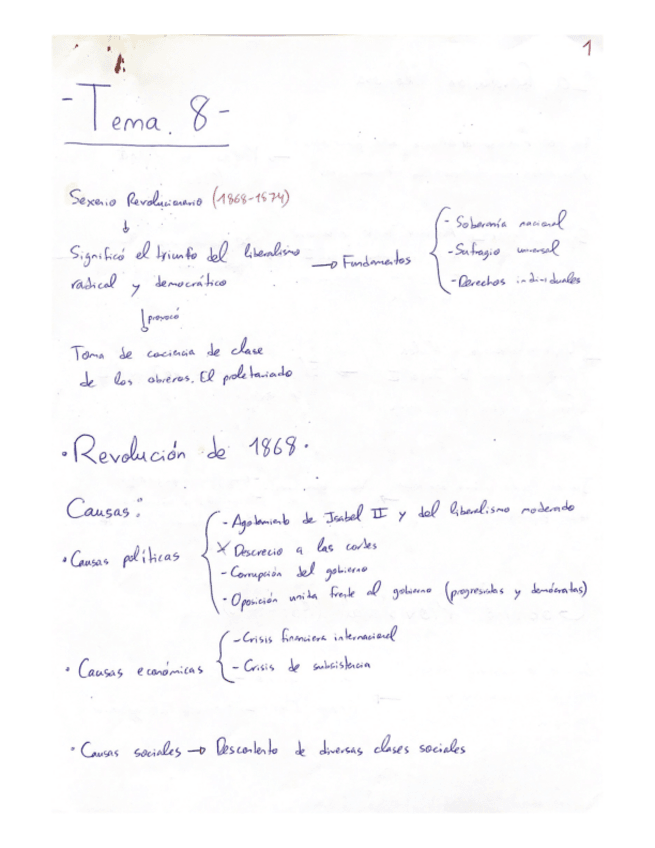 1
- Tema. 8 -
Sexenio Revolucionario (1868-1874)
Significó el triunfo del liberalismo
radical y democrático
→ Fundamentos
- Soberanía nacional
- Sufragio universal
- Derechos individuales
↓ provocó
Toma de conciencia de clase
de los obreros. El proletariado
· Revolución de 1868 ·
Causas:
· Causas políticas
- Agotamiento de Isabel II y del liberalismo moderado
a las cortes
- Corrupción del gobierno
- Oposición unida frente al gobierno (progresistas y demócratas)
· Causas económicas
- Crisis financiera internacional
- Crisis de subsistencia
· Causas sociales → Descontento de diversas clases sociales